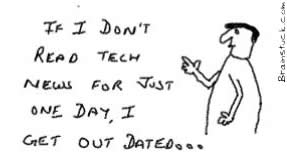 IF I DON'T
READ TECH
NEWS FOR JUST
ONE DAY, I
GET OUT DATED...
Brainstuck.com